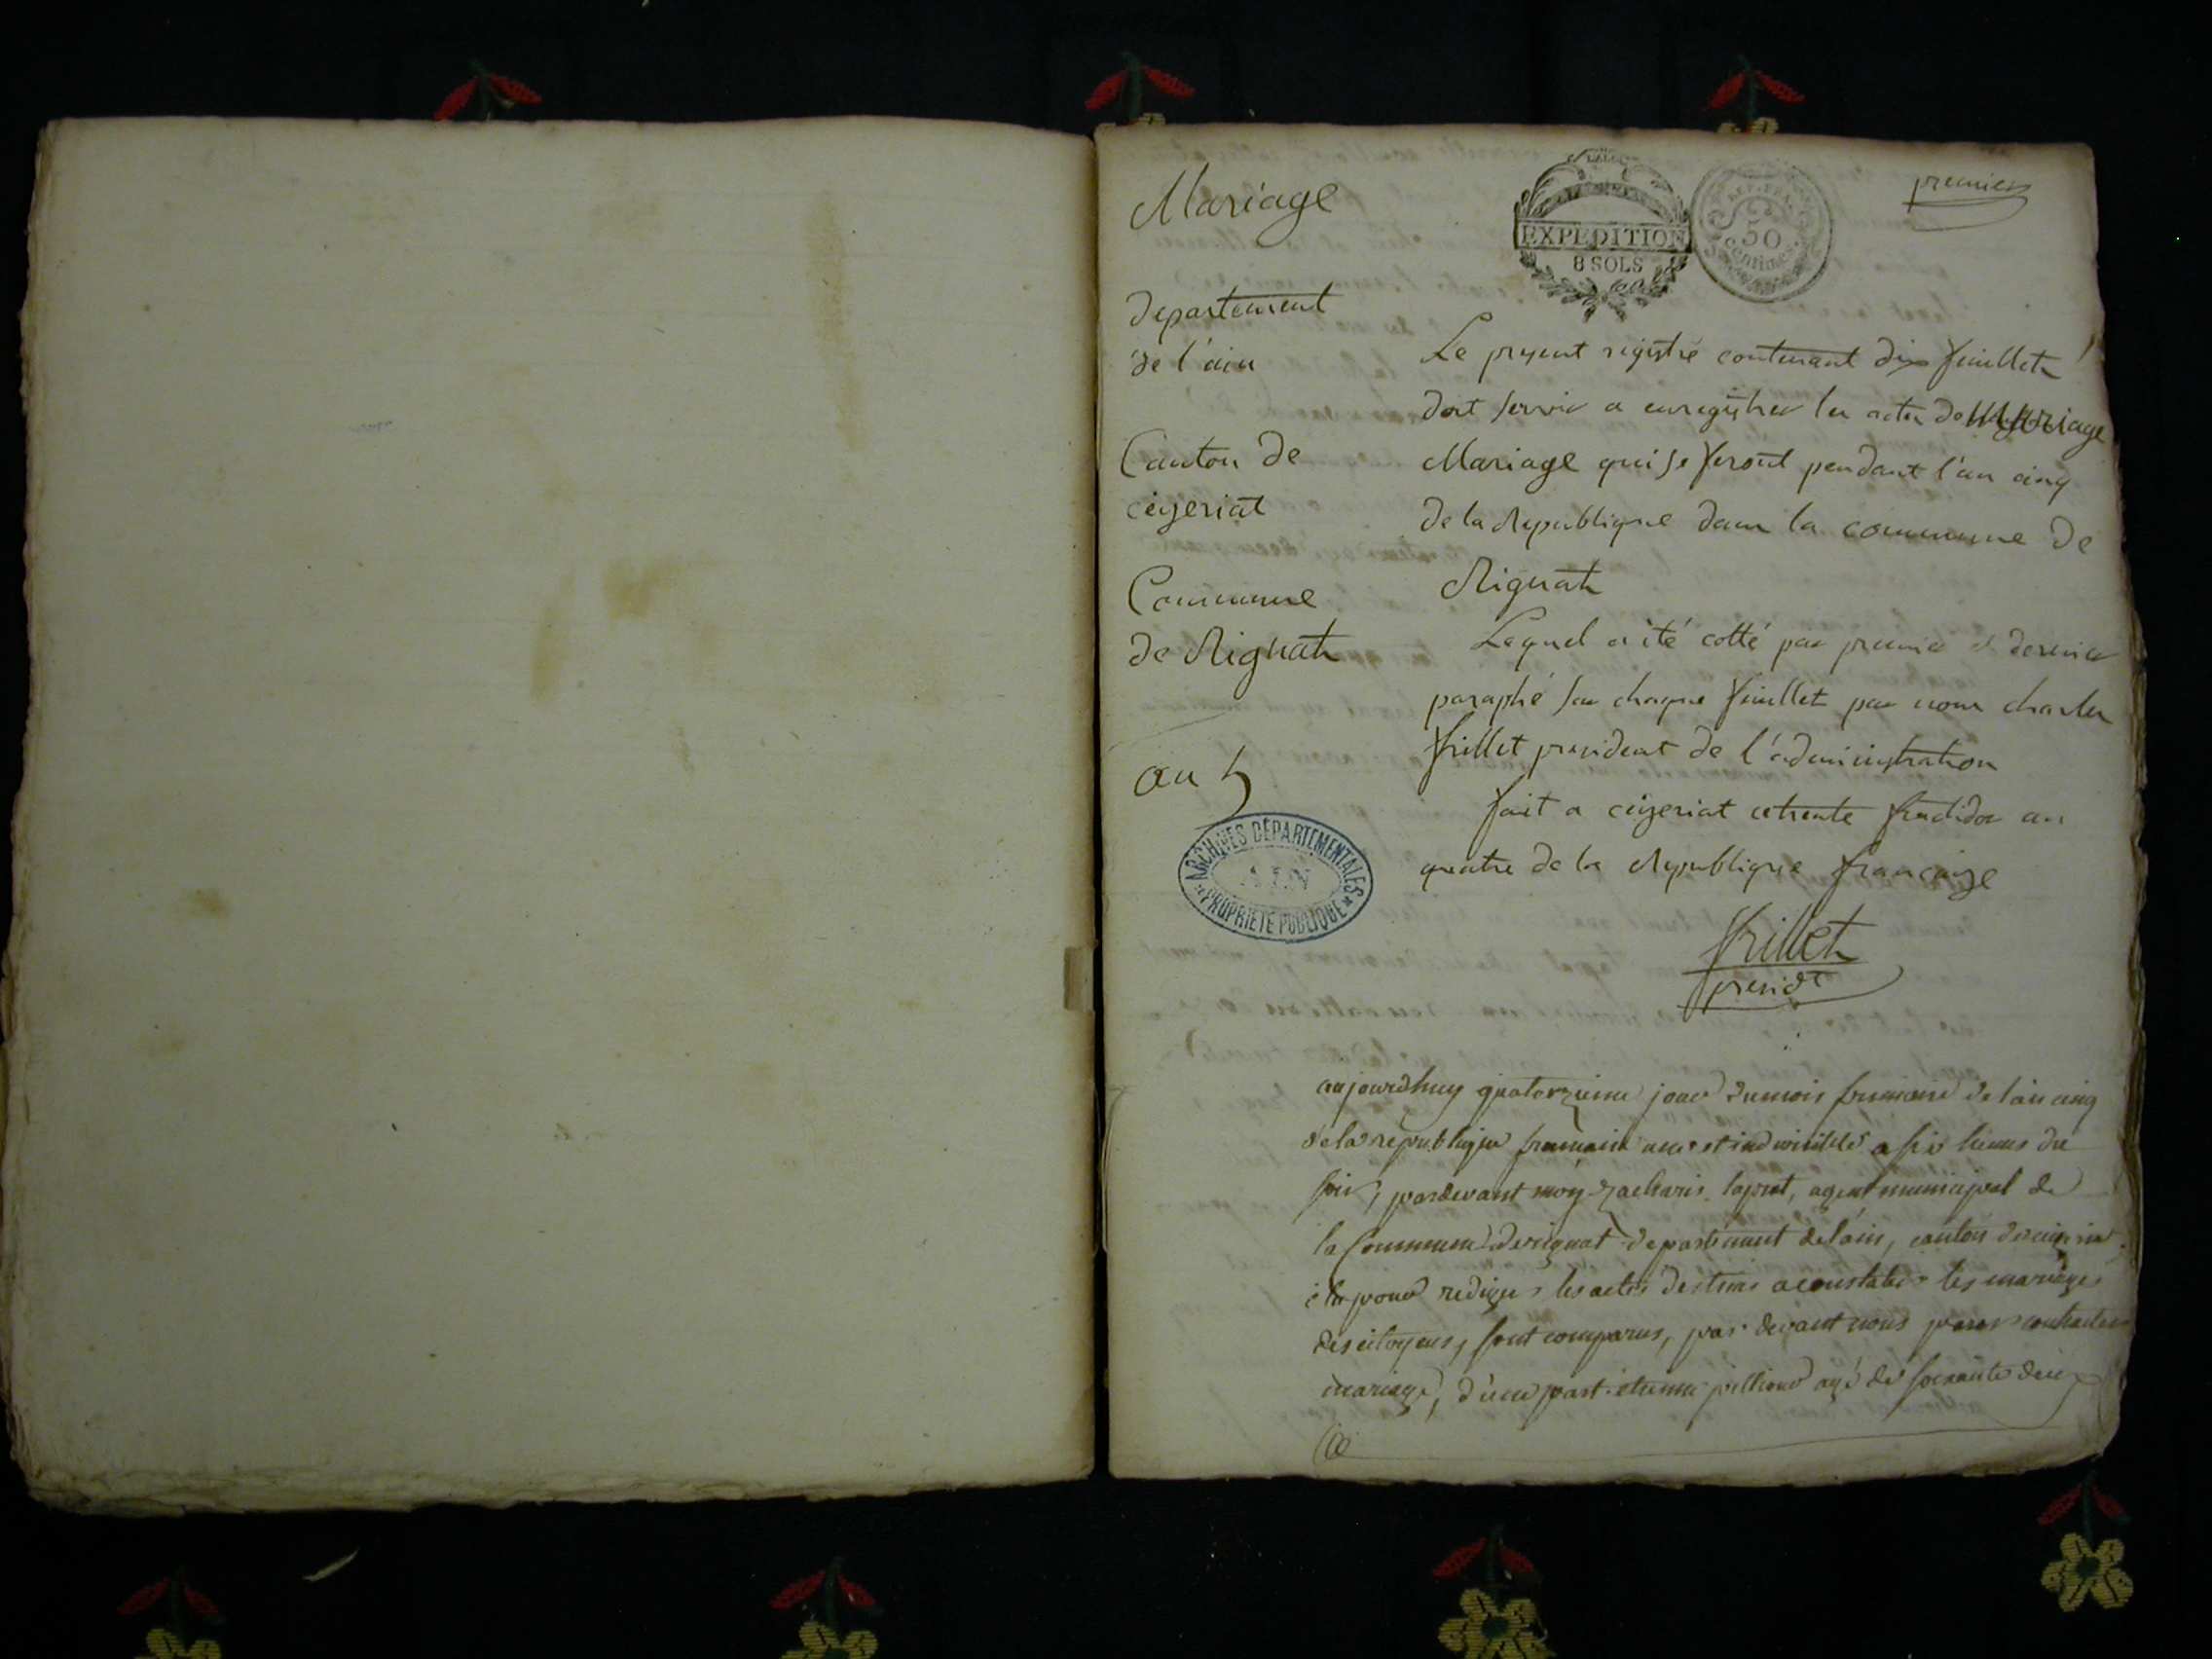 Mariage
premier
EXPEDITION
8 SOLS
REP. FRA.
50
Centimes
departement
de l'ain
Canton de
ceyzeriat
Commune
de Rignat
an 5
ARCHIVES DÉPARTEMENTALES
AIN
PROPRIÉTÉ PUBLIQUE
Le present registre contenant dix feuillets
doit servir a enregistrer les actes de
Mariage qui se feront pendant l'an cinq
de la Republique dans la commune de
Rignat
Lequel a été cotté par premier et dernier
paraphé sur chaque feuillet par nous charles
frillet president de l'administration
fait a ceyzeriat ce trente fructidor an
quatre de la Republique françoise
frillet
presidt
aujourdhuy quatorzieme jour du mois frimaire de lan cinq
de la republique francaise une et indivisible a six heures du
soir, pardevant moy zacharie, agent municipal de
la Commune de rignat departement de lain, canton de
elu pour rediger les actes destinés a constater les mariages
des citoyens, sont comparus, par devant nous pour contracter
mariage, d'une part etienne agé de soixante deux